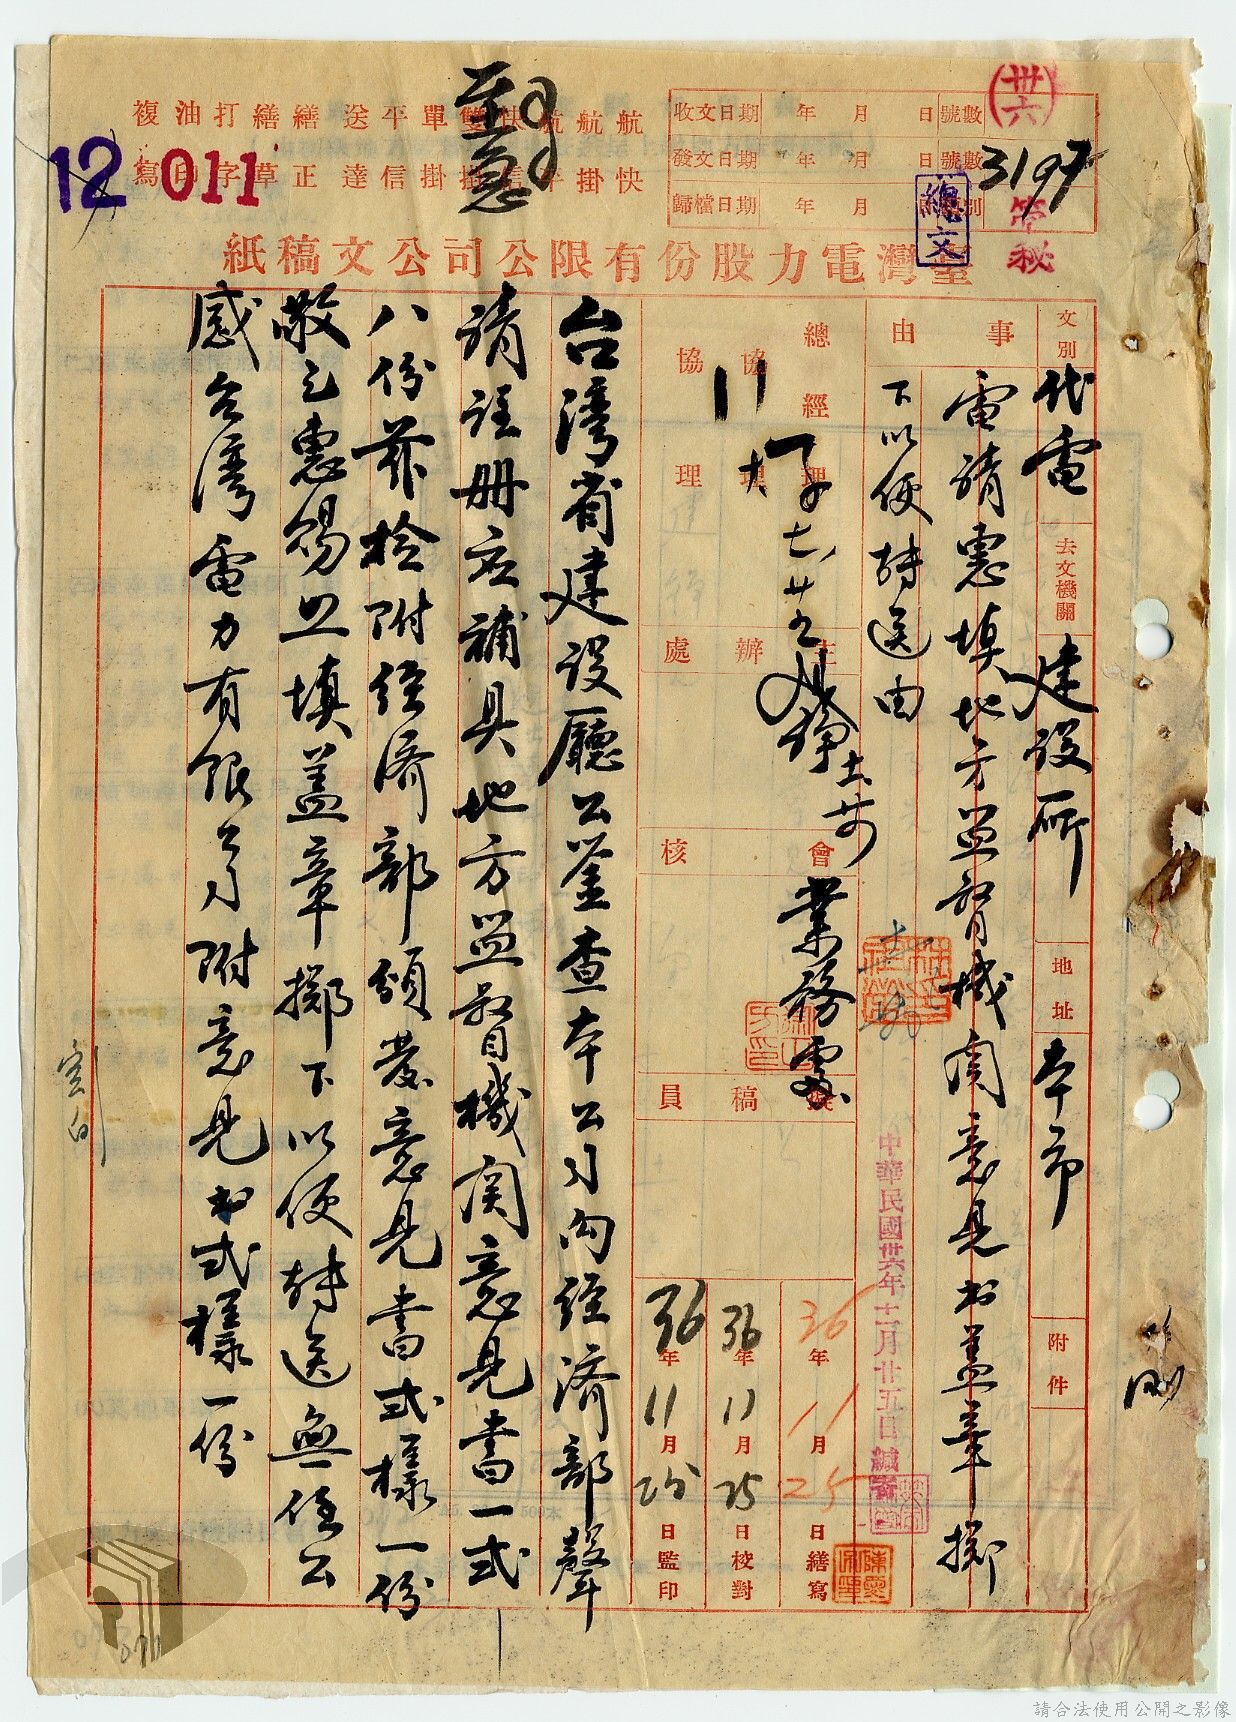 複 油 打 繕 繕 送 平 單 雙 快 航 航 航
寫 印 字 草 正 達 信 掛 掛 信 平 掛 快
至急
收文日期 年 月 日 號數
發文日期 年 月 日 號數
歸檔日期 年 月
3197
(卅六)
管秘
總文
12 011
臺灣電力股份有限公司公文稿紙
文別 代電 去文機關 建設所 地址 本市 附件
事由
電請惠填地方監督機関意見书盖章擲
下以便轉送由
總經理
協理
協理
主辦處
會核 業務處
擬稿員
中華民國卅六年十一月廿五日繕
36年11月25日繕寫
36年11月25日校對
36年11月25日監印
台湾省建设廳公鉴查本公司向經済部聲
請註册应補具地方監督機関意見書一式
八份茲检附經済部頒發意見書式様一份
敬乞惠賜照填盖章擲下以便轉送無任公
感台湾電力有限公司附意見书式樣一份
請合法使用公開之影像